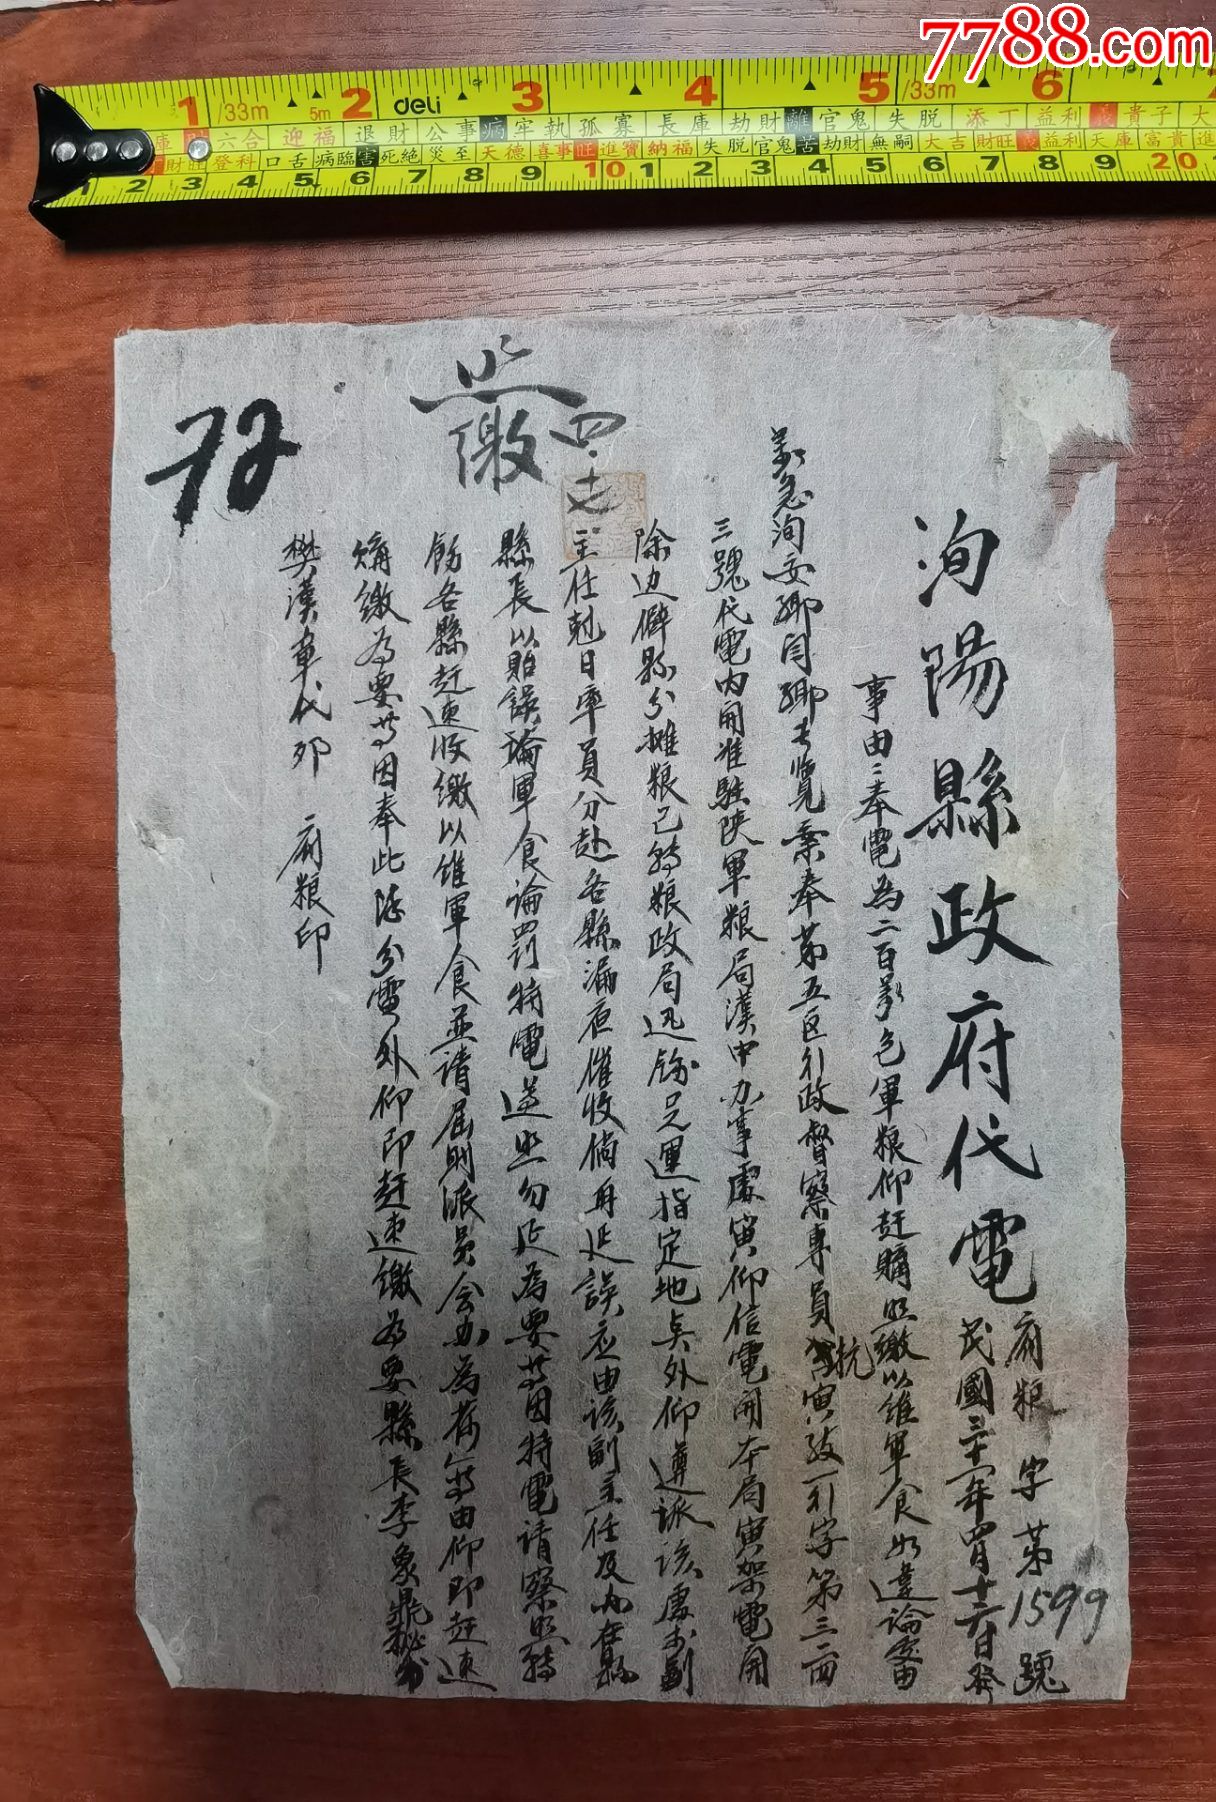 7788.com
1 /33m 5m 2 deli 3 4 5 /33m 6
財 六合 迎福 退財 公事 病 牢執 孤寡 長庫 劫財 離 官鬼 失脫 添丁 益利 貴子 大
財旺 登科 口舌 病臨 害 死絶 災至 天德 喜事 旺 進寶 納福 失脫 官鬼 苦 劫財 無嗣 大吉 財旺 義 益利 天庫 富貴 進
1 2 3 4 5 6 7 8 9 10 1 2 3 4 5 6 7 8 9 20 1
洵陽縣政府代電
府粮字第1599號
民國三十一年四月十六日發
事由：奉電為二百萬包軍粮仰赶購照繳以維軍食如違論處由
萬急洵安鄉閆鄉長覽案奉第五区行政督察專員寅行字第三四
三號代電內開准駐陝軍粮局漢中办事處寅仰信電開本局寅架電開
除边僻縣分攤粮已轉粮政局迅飭兑運指定地点外仰遵派該處副
主任剋日率員分赴各縣漏夜催收倘再延誤应由該副主任及內在縣
縣長以貽誤軍食論罰特電遵照勿延為要等因特電請察照轉
飭各縣赶速收繳以維軍食並請屆則派員会办為荷等由仰即赶速
購繳為要等因奉此除分電外仰即赶速繳為要縣長李象鼎秘書
樊漢章代卯 府粮印
照繳
四·十七
72